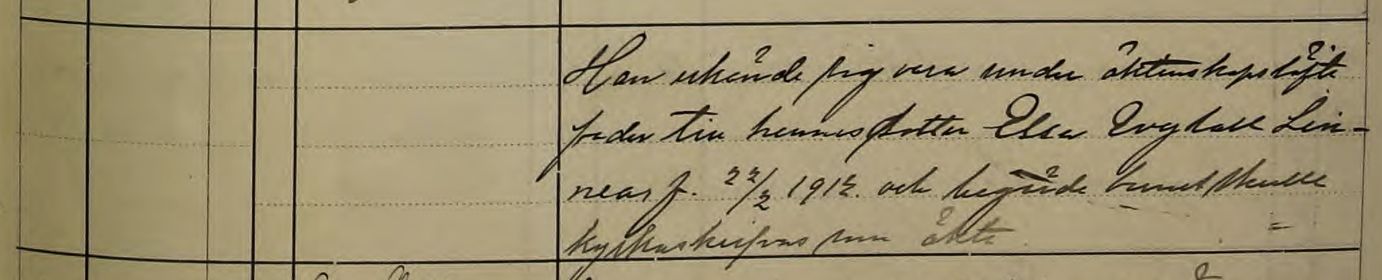 Han erkände sig vara under äktenskapslöfte
fader till hennes dotter Elsa Inghall Lin-
neas f. 22/2 1912 och begärde barnet skulle
kyrkoskrifvas som äkta